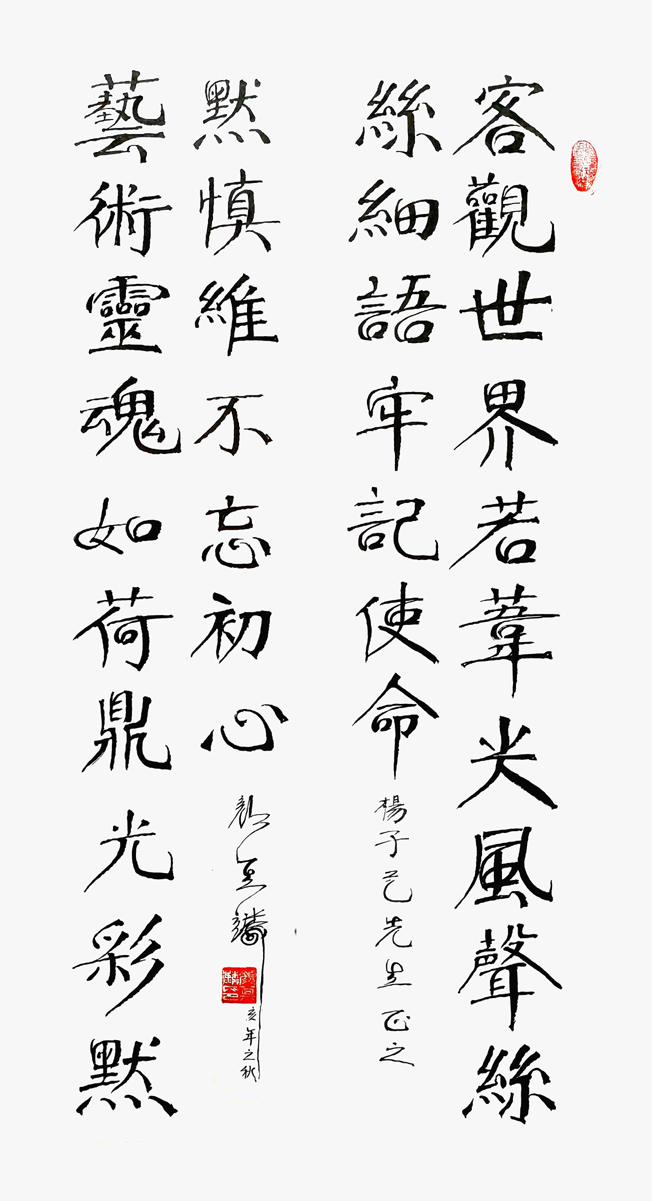 客觀世界若葦尖風聲絲
絲細語牢記使命
楊子艺先生正之
藝術靈魂如荷鼎光彩默
默慎維不忘初心
亥年之秋